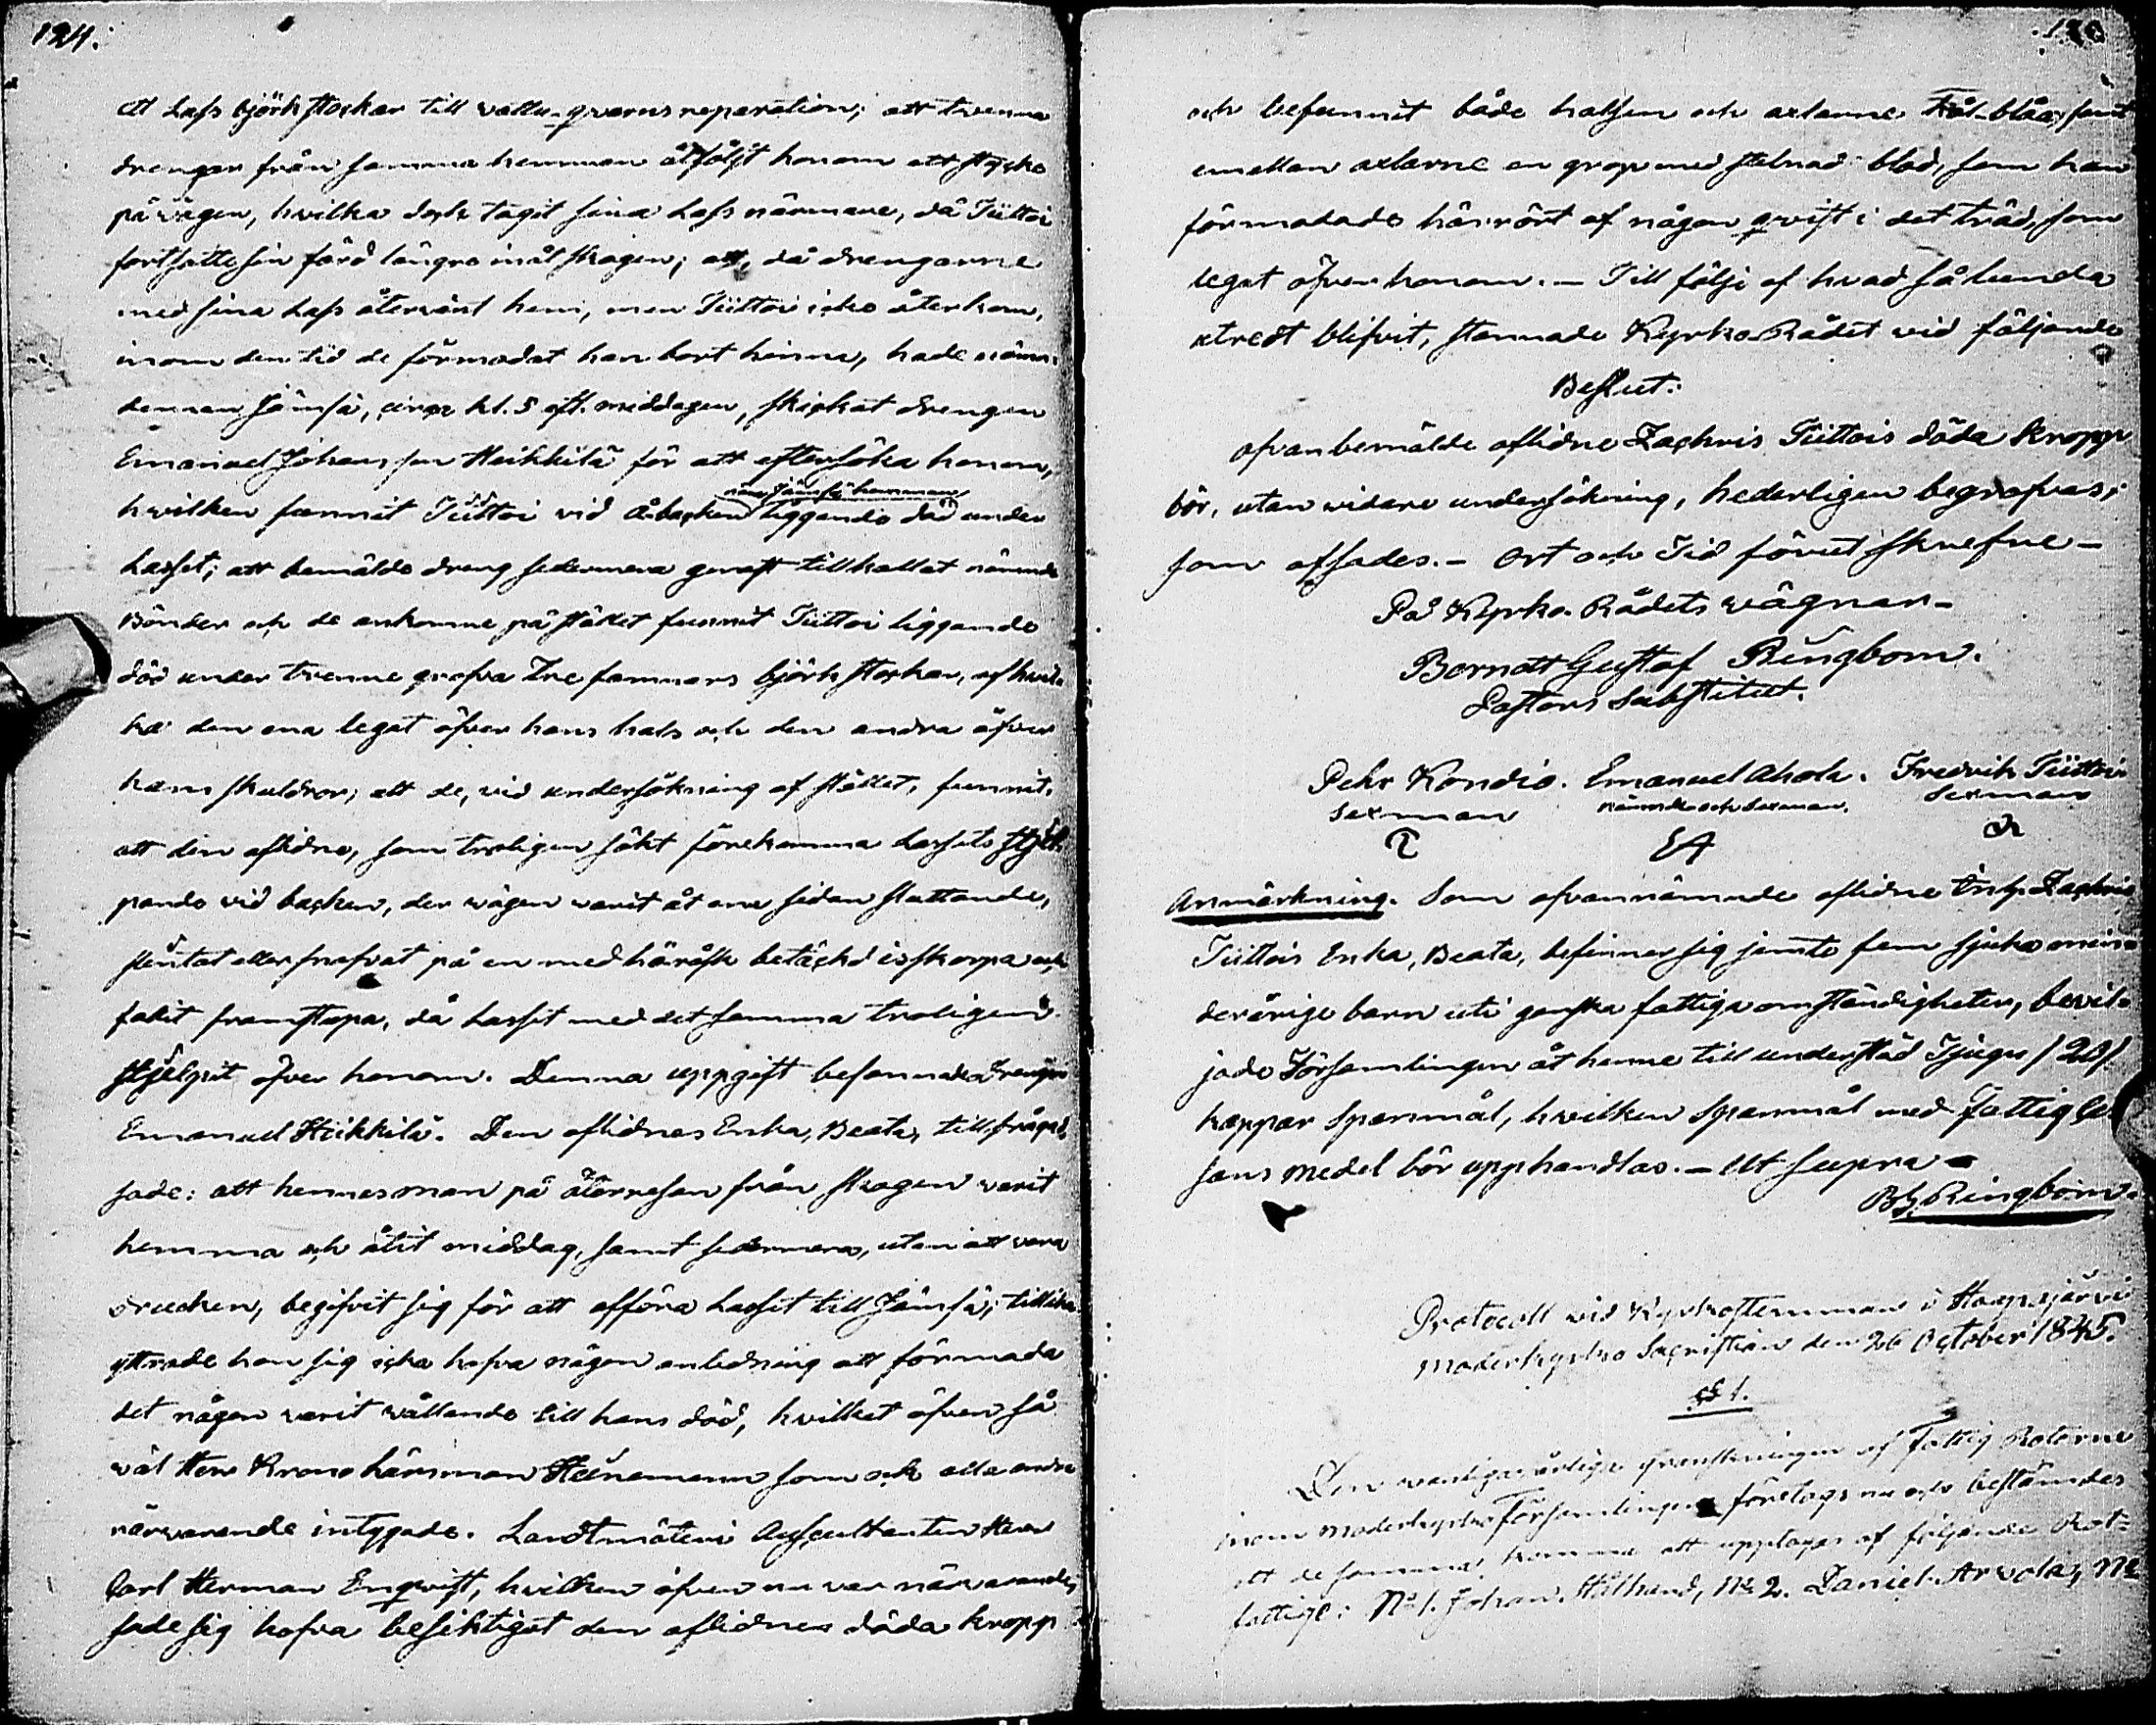 124.
ett lass björkstockar till vattu-qvarnsreparation; att tvenne
drengar från samma hemman åtföljt honom ett stycke
på vägen, hvilka dock tagit sina lass närmare, då Tiittoi
fortsatte sin färd längre inåt skogen; att, då drengarne
med sina lass återvänt hem, men Tiittoi icke återkom,
inom den tid de förmodat han bort hinna, hade nämn-
demannen Jämsä, circa kl. 5 eft. middagen, skickat drengen
Emanuel Johansson Heikkilä för att eftersöka honom,
nära Jämsä hemman
hvilken funnit Tiittoi vid Åbacken liggande död under
lasset; att bemälde dreng sedermera genast tillkallat nämnde
Bönder och de ankomne på stället funnit Tiittoi liggande
död under tvenne grofva Tre famnars björkstockar, af hvil-
ka den ena legat öfver hans hals och den andra öfver
hans skuldror; att de, vid undersökning af stället, funnit,
att den aflidne, som troligen sökt förekomma lassets stjel-
pande vid backen, der vägen varit åt ena sidan sluttande,
slintat eller snafvat på en med häråsk betäckd isskorpa och
fallit framstupa, då lasset med det samma troligen
stjelpit öfver honom. Denna uppgift besannade Drengen
Emanuel Heikkilä. Den aflidnes Enka, Beata, tillfrågad,
sade: att hennes man på återresan från skogen varit
hemma och ätit middag, samt sedermera, utan att vara
drucken, begifvit sig för att afföra lasset till Jämsä; tillika
yttrade hon sig icke hafva någon anledning att förmoda
det någon varit vållande till hans död, hvilket äfven så
väl Herr Krono länsman som ock alla andra
närvarande intygade. Landtmäteri Auscultanten Herr
Carl Herman Enqvist, hvilken äfven nu var närvarande,
sade sig hafva besiktigat den aflidnes döda kropp
och befunnit både halsen och axlarne blåa, samt
emellan axlarne en grop med stelnad blod, som han
förmodade härrört af någon qvist i det träd, som
legat öfver honom. — Till följe af hvad sålunda
utredt blifvit, stannade Kyrko-Rådet vid följande
Beslut:
ofvanbemälde aflidne Zachris Tiittois döda kropp
bör, utan vidare undersökning, hederligen begrafvas;
som afsades. — Ort och Tid förut skrefne —
På Kyrko-Rådets vägnar —
Berndt Gustaf Ringbom.
Pastors Substitut.
Pehr Kondio. Emanuel Ahola. Fredrik Tiittois
Sexman nämnde och Sexman. Sexman
EA
Anmärkning. Som ofvannämnde aflidne Zachris
Tiittois Enka, Beata, befinner sig jemte fem sjuka min-
derårige barn uti ganska fattiga omständigheter, bevil-
jade Församlingen åt henne till understöd Tjugu /20/
kappar Spanmål, hvilken Spanmål med Fattig Cas-
sans medel bör upphandlas. — Ut supra —
BG Ringbom.
Protocoll vid Kyrkostemman i Haapajärvi
Moderkyrko Sacristian den 26 October 1845.
§ 1.
Den vanliga årliga granskningen af Fattig Roterne
inom Moderkyrko Församlingen företogs nu och bestämdes
att de samma komme att upptagas af följande Rot-
fattige: No 1. Johan Stålhand, No 2. Daniel Arvola, No